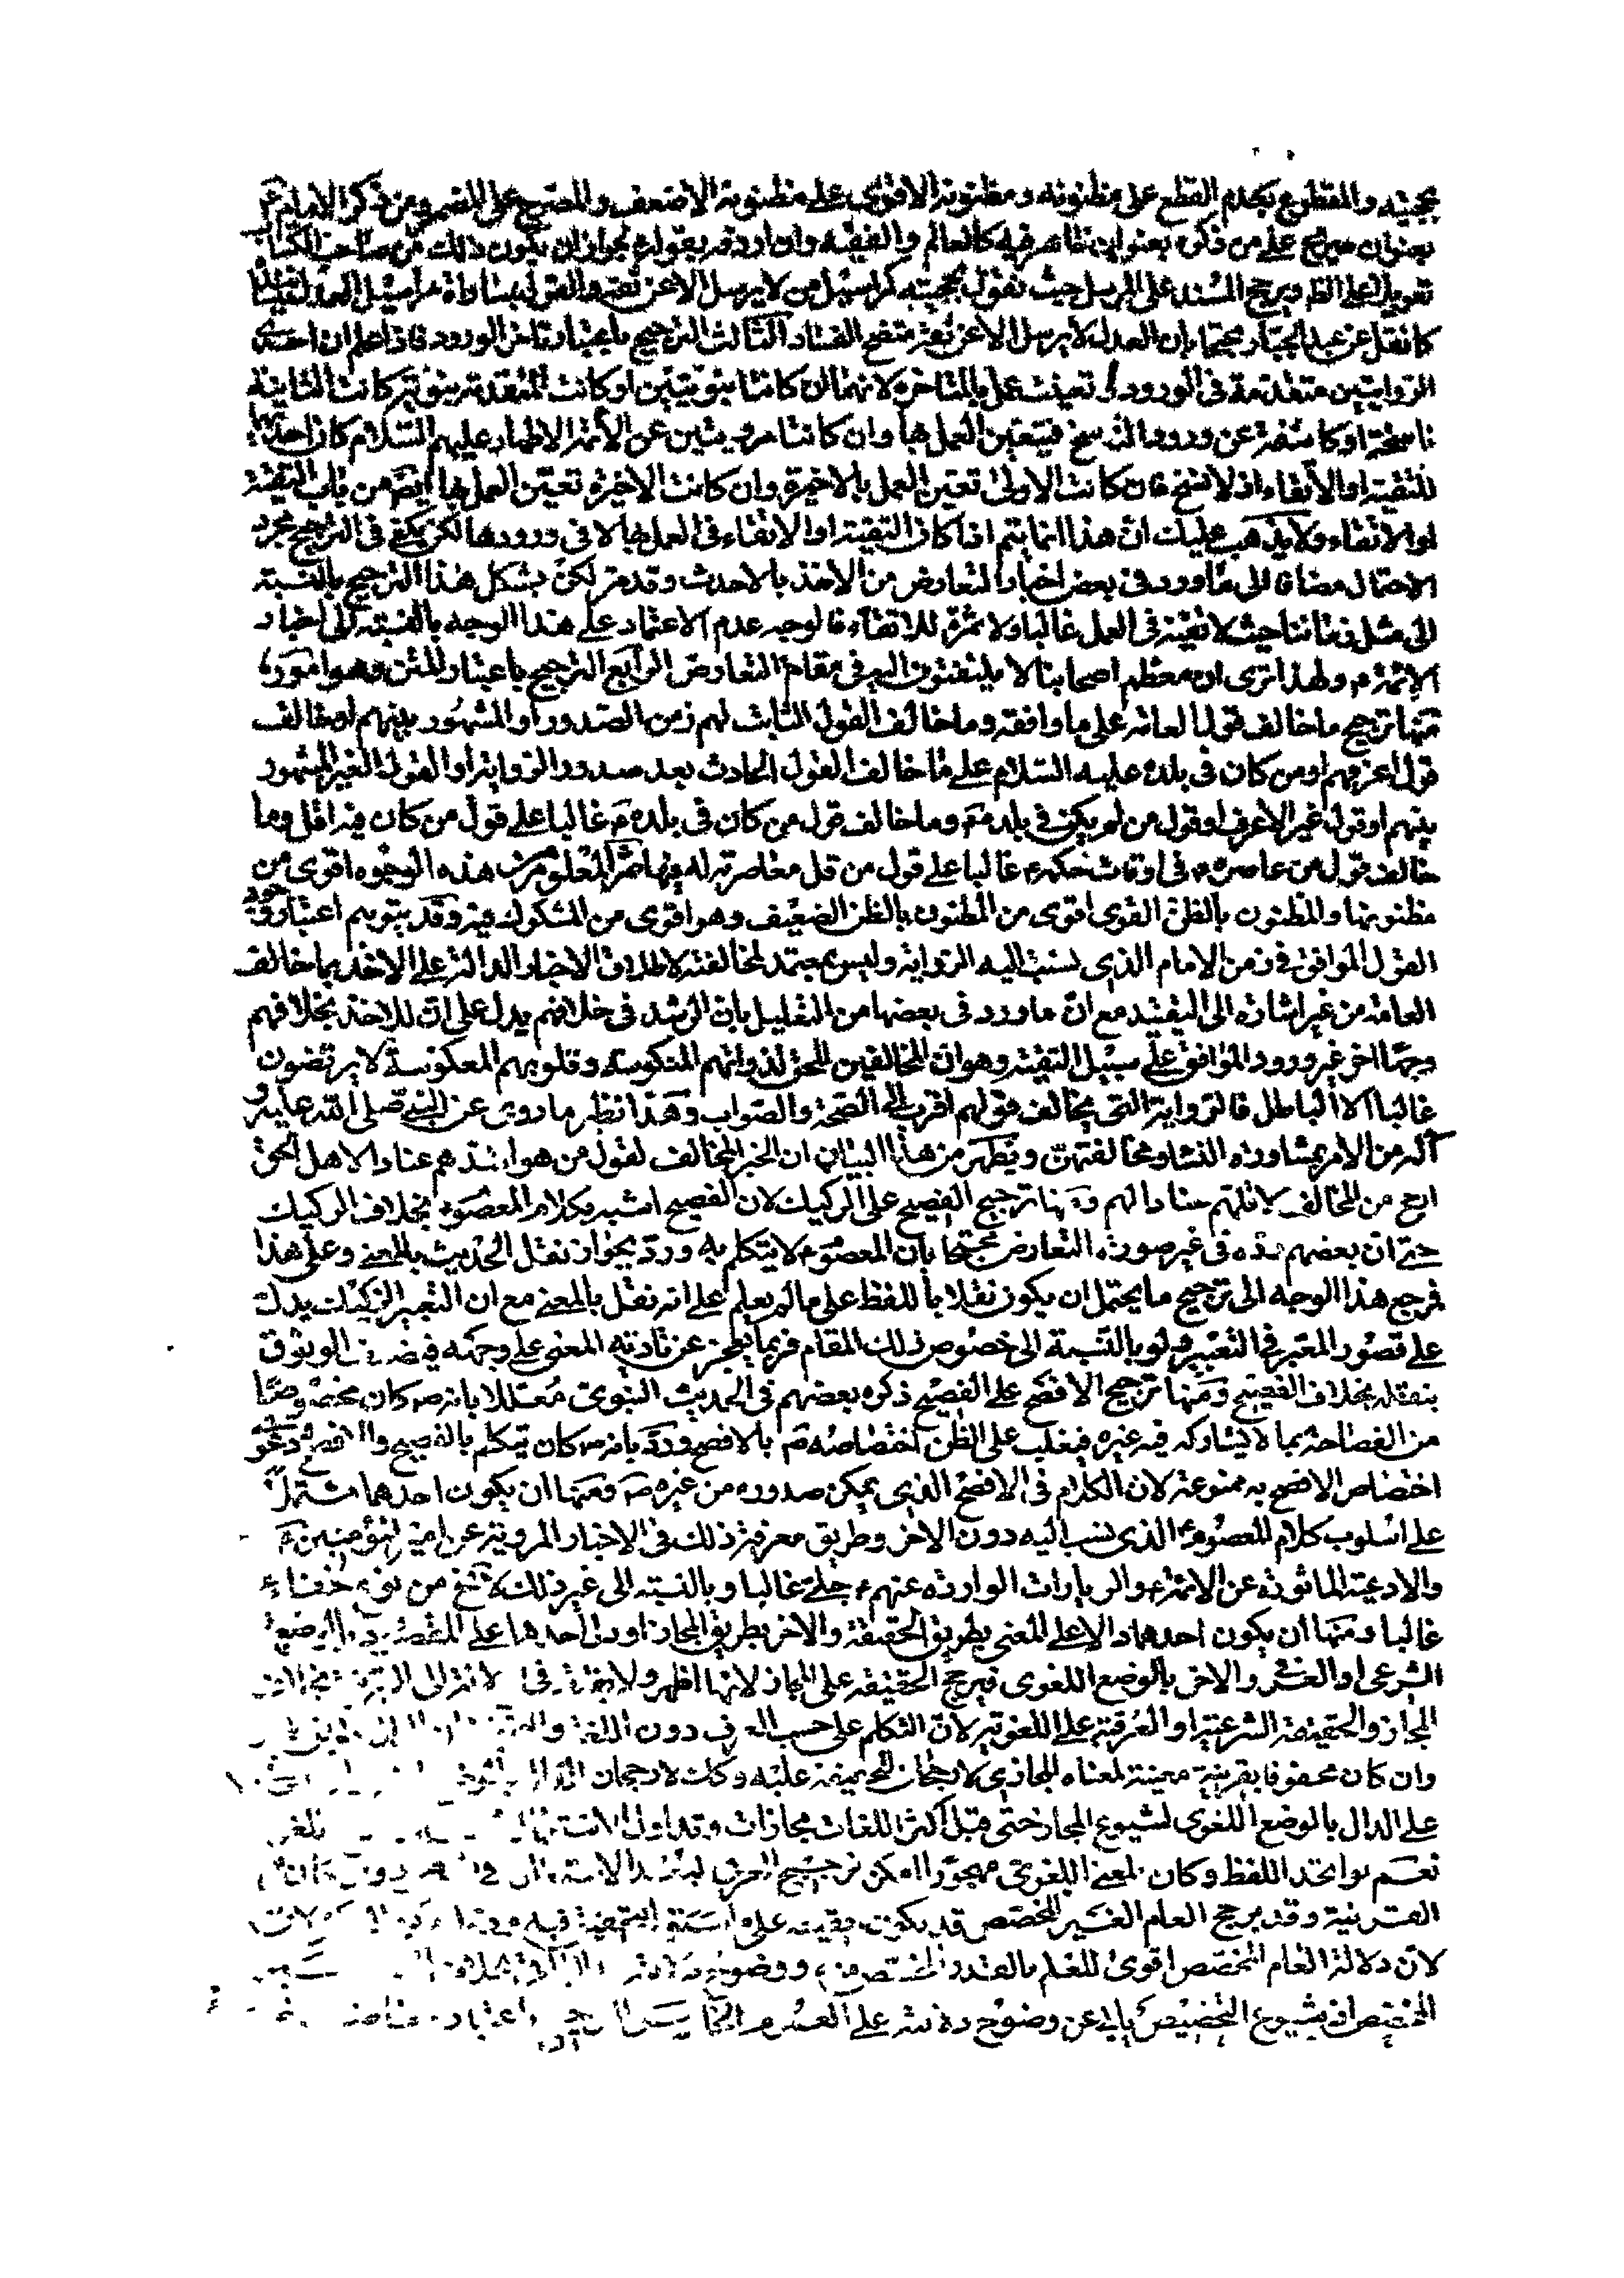 بحجيته والمقطوع بعدم القطع على مظنونه ومظنونة الاقوى على مظنونة الاضعف والمصرح على المضمر ومن ذكر الامام ع
بعنوان صريح على من ذكره بعنوان ظاهر فيه كالعالم والفقيه وان اردفه بقوله ع لجواز ان يكون ذلك من صاحب الكتاب
تعويلا على الظن ويرجح المسند على المرسل حيث نقول بحجيته كمراسيل من لا يرسل الا عن ثقة والقول بمساواة مراسيل العدل لمسانيده
كما نقل عن عبد الجبار محتجا بان العدل لا يرسل الا عن ثقة متضح الفساد الثالث الترجيح باعتبار تاخر الورود فاذا علم ان احدى
الروايتين متقدمة في الورود تعينت العمل بالمتاخرة لانهما ان كانتا نبويتين او كانت المتقدمة نبوية كانت الثانية
ناسخة او كاشفة عن ورود الناسخ فيتعين العمل بها وان كانتا مرويتين عن الأئمة الاطهار عليهم السلام كان احدهما
للتقية او الاتقاء اذ لا نسخ فان كانت الاولى تعين العمل بالاخيرة وان كانت الاخيرة تعين العمل بها ايضا من باب التقية
او الاتقاء ولا يذهب عليك ان هذا انما يتم اذا كان التقية او الاتقاء في العمل بها لا في ورودها لكن يكفي في الترجيح مجرد
الاحتمال مضافا الى ما ورد في بعض اخبار التعارض من الاخذ بالاحدث وقد مر لكن يشكل هذا الترجيح بالنسبة
الى مثل زماننا حيث لا تقية في العمل غالبا ولا ثمرة للاتقاء فالوجه عدم الاعتماد على هذا الوجه بالنسبة الى اخبار
الائمة ع ولهذا ترى ان معظم اصحابنا لا يلتفتون اليه في مقام التعارض الرابع الترجيح باعتبار المتن وهو امور
منها ترجيح ما خالف قول العامة على ما وافقه وما خالف القول الثابت لهم زمن الصدور او المشهور بينهم او خالف
قول اعرفهم او من كان في بلده عليه السلام على ما خالف القول الحادث بعد صدور الرواية او القول الغير المشهور
بينهم او قول غير الاعرف او قول من لم يكن في بلده ع وما خالف قول من كان في بلده ع غالبا على قول من كان فيه اقل وما
خالف قول من عاصره ع في اوقات حكمه ع غالبا على قول من قل معاصرته له فيها ثم المعلوم من هذه الوجوه اقوى من
مظنونها والمظنون بالظن القوى اقوى من المظنون بالظن الضعيف وهو اقوى من المشكوك فيه وقد يتوهم اعتبار وجود
القول الموافق في زمن الامام الذي نسبت اليه الرواية وليس بمعتمد لمخالفته لاطلاق الاخبار الدالة على الاخذ بما خالف
العامة من غير اشارة الى التقييد مع ان ما ورد في بعضها من التعليل بان الرشد في خلافهم يدل على ان للاخذ بخلافهم
وجها اخر غير ورود الموافق على سبيل التقية وهو ان المخالفين للحق لذواتهم المنكوسة وقلوبهم المعكوسة لا يرتضون
غالبا الا الباطل فالرواية التي تخالف قولهم اقرب الى الصحة والصواب وهذا نظير ما روى عن النبي صلى الله عليه و
آله من الامر بمشاورة النساء ومخالفتهن ويظهر من هذا البيان ان الخبر المخالف لقول من هو اشدهم عنادا لاهل الحق
ارجح من المخالف لاقلهم عنادا لهم ومنها ترجيح الفصيح على الركيك لان الفصيح اشبه بكلام المعصوم ع بخلاف الركيك
حتى ان بعضهم رده في غير صورة التعارض محتجا بان المعصوم ع لا يتكلم به ورد بجواز نقل الحديث بالمعنى وعلى هذا
فيرجع هذا الوجه الى ترجيح ما يحتمل ان يكون نقلا باللفظ على ما لم يعلم على انه نقل بالمعنى مع ان التعبير الركيك يدل
على قصور المعبر في التعبير ولو بالنسبة الى خصوص ذلك المقام فربما يعجز عن تادية المعنى على وجهه فيضعف الوثوق
بنقله بخلاف الفصيح ومنها ترجيح الافصح على الفصيح ذكره بعضهم في الحديث النبوي معللا بانه ص كان مخصوصا
من الفصاحة بما لا يشاركه فيه غيره فيغلب على الظن اختصاصه ص بالافصح ورد بانه ص كان يتكلم بالفصيح والافصح ودعوى
اختصاص الافصح به ممنوعة لان الكلام في الافصح الذي يمكن صدوره من غيره ص ومنها ان يكون احدهما مشتملا
على اسلوب كلام المعصوم ع الذي نسب اليه دون الاخر وطريق معرفة ذلك في الاخبار المروية عن امير المؤمنين ع
والادعية الماثورة عن الائمة ع والزيارات الواردة عنهم ع جلي غالبا وبالنسبة الى غير ذلك من نوع خفاء
غالبا ومنها ان يكون احدهما دالا على المعنى بطريق الحقيقة والاخر بطريق المجاز او دل احدهما على المقصود بالوضع
الشرعي او العرفي والاخر بالوضع اللغوي فيرجح الحقيقة على المجاز لانها اظهر القرينة بخلاف
المجاز والحقيقة الشرعية او العرفية على اللغوية لان التكلم على حسب العرف دون اللغة
وان كان محفوفا بقرينة معينة لمعناه المجازي لا رجحان للحقيقة عليه وكذا لا رجحان للدال
على الدال بالوضع اللغوي لشيوع المجاز حتى قيل اكثر اللغات مجازات وتداول
نعم لو اتحد اللفظ وكان المعنى اللغوي مهجورا امكن ترجيح العرفي
العرفية وقد يرجح العام الغير المخصص
لان دلالة العام المخصص اقوى للعلم بالقدر المخصص منه ووضوح
المخصص اذ شيوع التخصيص يابى عن وضوح دلالته على العموم الخامس الترجيح باعتبار